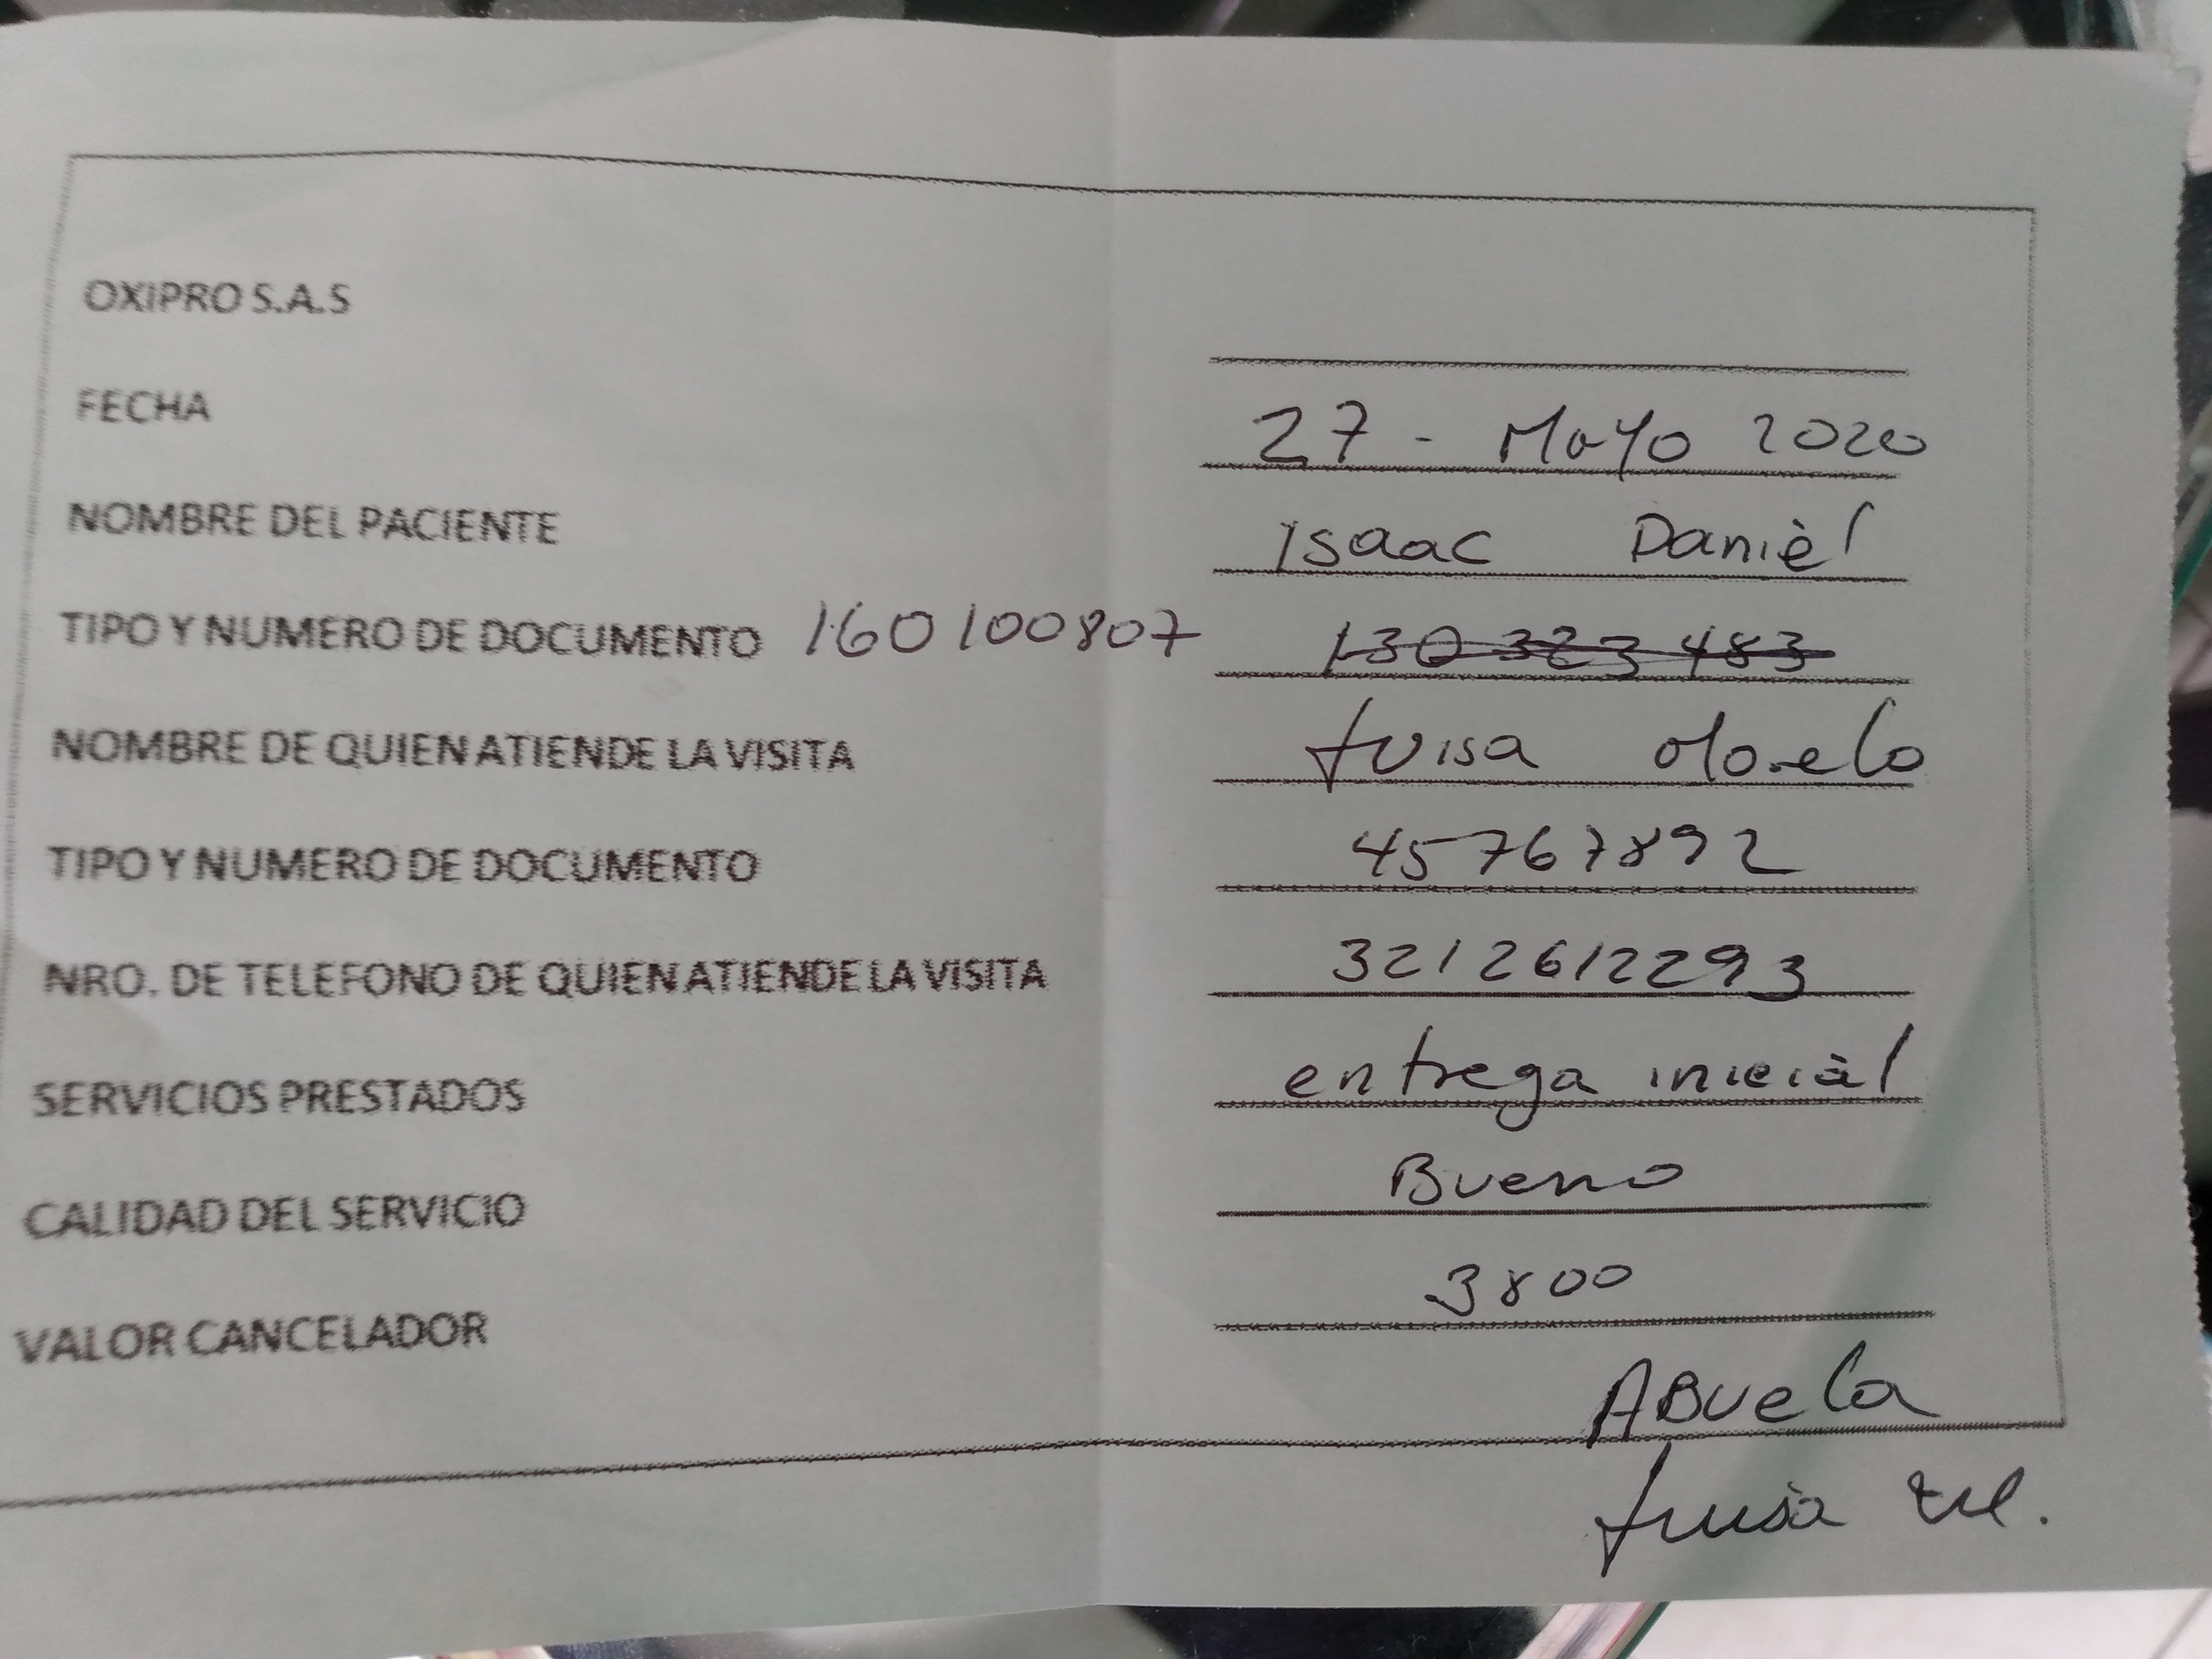 OXIPRO S.A.S
FECHA 27 - Mayo 2020
NOMBRE DEL PACIENTE Isaac Daniel
TIPO Y NUMERO DE DOCUMENTO 160100807 130 323 483
NOMBRE DE QUIEN ATIENDE LA VISITA Luisa Morelo
TIPO Y NUMERO DE DOCUMENTO 45767892
NRO. DE TELEFONO DE QUIEN ATIENDE LA VISITA 3212612293
SERVICIOS PRESTADOS entrega inicial
CALIDAD DEL SERVICIO Bueno
VALOR CANCELADOR 3800
ABuela
Luisa